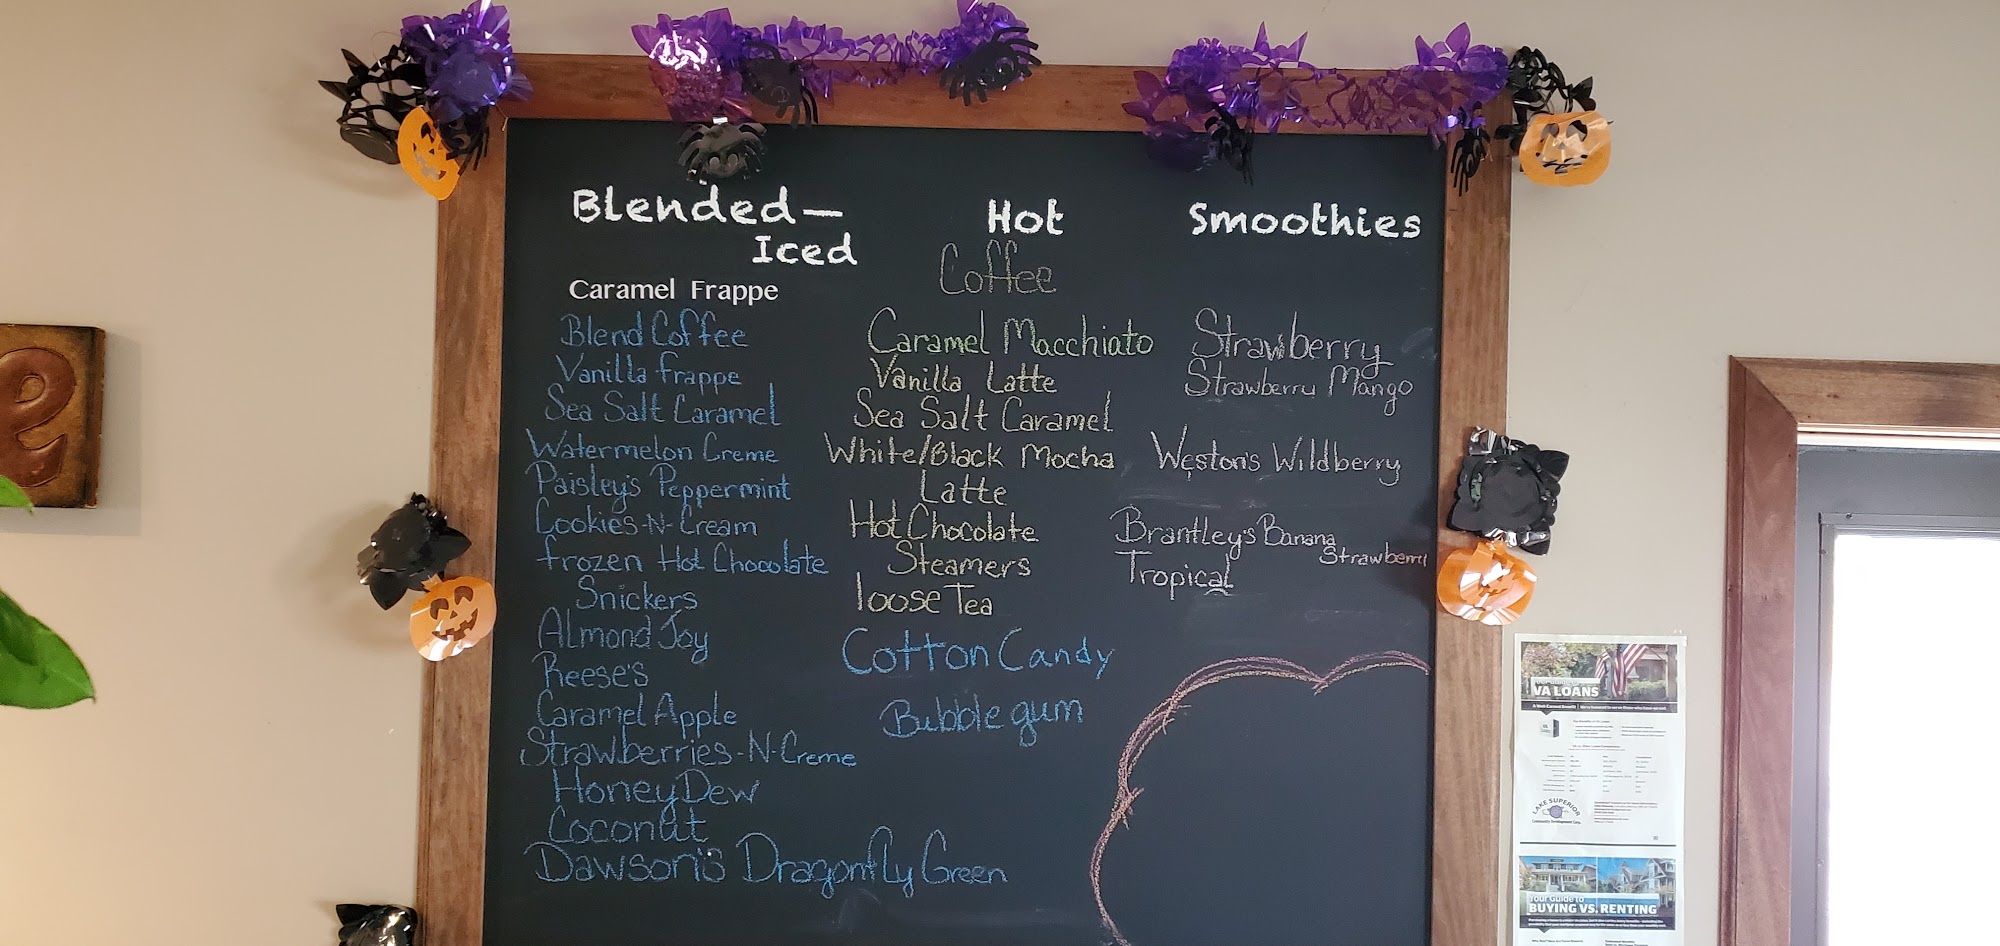 Blended—
Iced
Caramel Frappe
Blend Coffee
Vanilla frappe
Sea Salt Caramel
Watermelon Creme
Paisley's Peppermint
Cookies-N-Cream
frozen Hot Chocolate
Snickers
Almond Joy
Reese's
Caramel Apple
Strawberries-N-Creme
HoneyDew
Coconut
Dawson's Dragonfly Green
Hot
Coffee
Caramel Macchiato
Vanilla Latte
Sea Salt Caramel
White/Black Mocha
Latte
Hot Chocolate
Steamers
loose Tea
Cotton Candy
Bubble gum
Smoothies
Strawberry
Strawberry Mango
Weston's Wildberry
Brantley's Banana
Strawberry
Tropical
e
VA LOANS
LAKE SUPERIOR
Community Development Corp.
Your Guide to
BUYING VS. RENTING